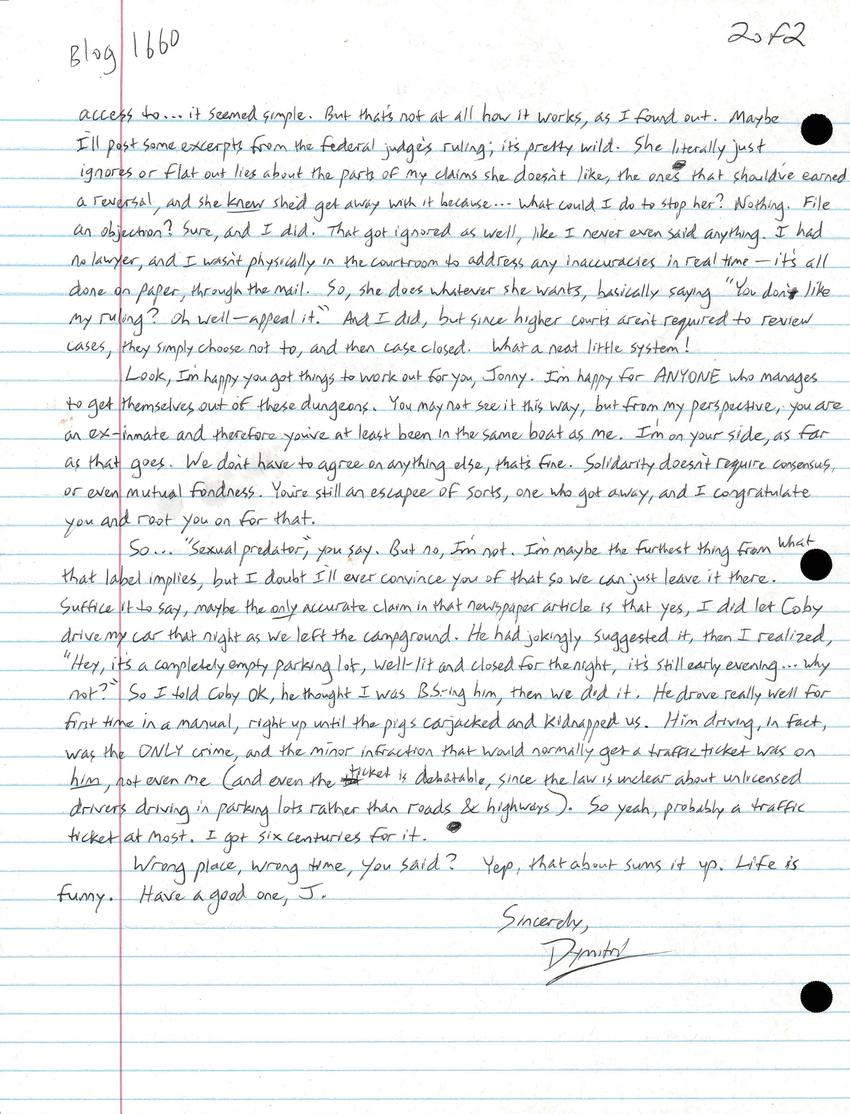 Blog 1660
2 of 2
access to... it seemed simple. But that's not at all how it works, as I found out. Maybe
I'll post some excerpts from the federal judge's ruling; it's pretty wild. She literally just
ignores or flat out lies about the parts of my claims she doesn't like, the ones that should've earned
a reversal, and she knew she'd get away with it because... what could I do to stop her? Nothing. File
an objection? Sure, and I did. That got ignored as well, like I never even said anything. I had
no lawyer, and I wasn't physically in the courtroom to address any inaccuracies in real time — it's all
done on paper, through the mail. So, she does whatever she wants, basically saying "You don't like
my ruling? Oh well — appeal it." And I did, but since higher courts aren't required to review
cases, they simply choose not to, and then case closed. What a neat little system!
Look, I'm happy you got things to work out for you, Jonny. I'm happy for ANYONE who manages
to get themselves out of these dungeons. You may not see it this way, but from my perspective, you are
an ex-inmate and therefore you've at least been in the same boat as me. I'm on your side, as far
as that goes. We don't have to agree on anything else, that's fine. Solidarity doesn't require consensus,
or even mutual fondness. You're still an escapee of sorts, one who got away, and I congratulate
you and root you on for that.
So... "Sexual predator," you say. But no, I'm not. I'm maybe the furthest thing from what
that label implies, but I doubt I'll ever convince you of that so we can just leave it there.
Suffice it to say, maybe the only accurate claim in that newspaper article is that yes, I did let Coby
drive my car that night as we left the campground. He had jokingly suggested it, then I realized,
"Hey, it's a completely empty parking lot, well-lit and closed for the night, it's still early evening... why
not?" So I told Coby OK, he thought I was B.S.-ing him, then we did it. He drove really well for
first time in a manual, right up until the pigs carjacked and kidnapped us. Him driving, in fact,
was the ONLY crime, and the minor infraction that would normally get a traffic ticket was on
him, not even me (and even the ticket is debatable, since the law is unclear about unlicensed
drivers driving in parking lots rather than roads & highways). So yeah, probably a traffic
ticket at most. I got six centuries for it.
Wrong place, wrong time, you said? Yep, that about sums it up. Life is
funny. Have a good one, J.
Sincerely,
Dymitri